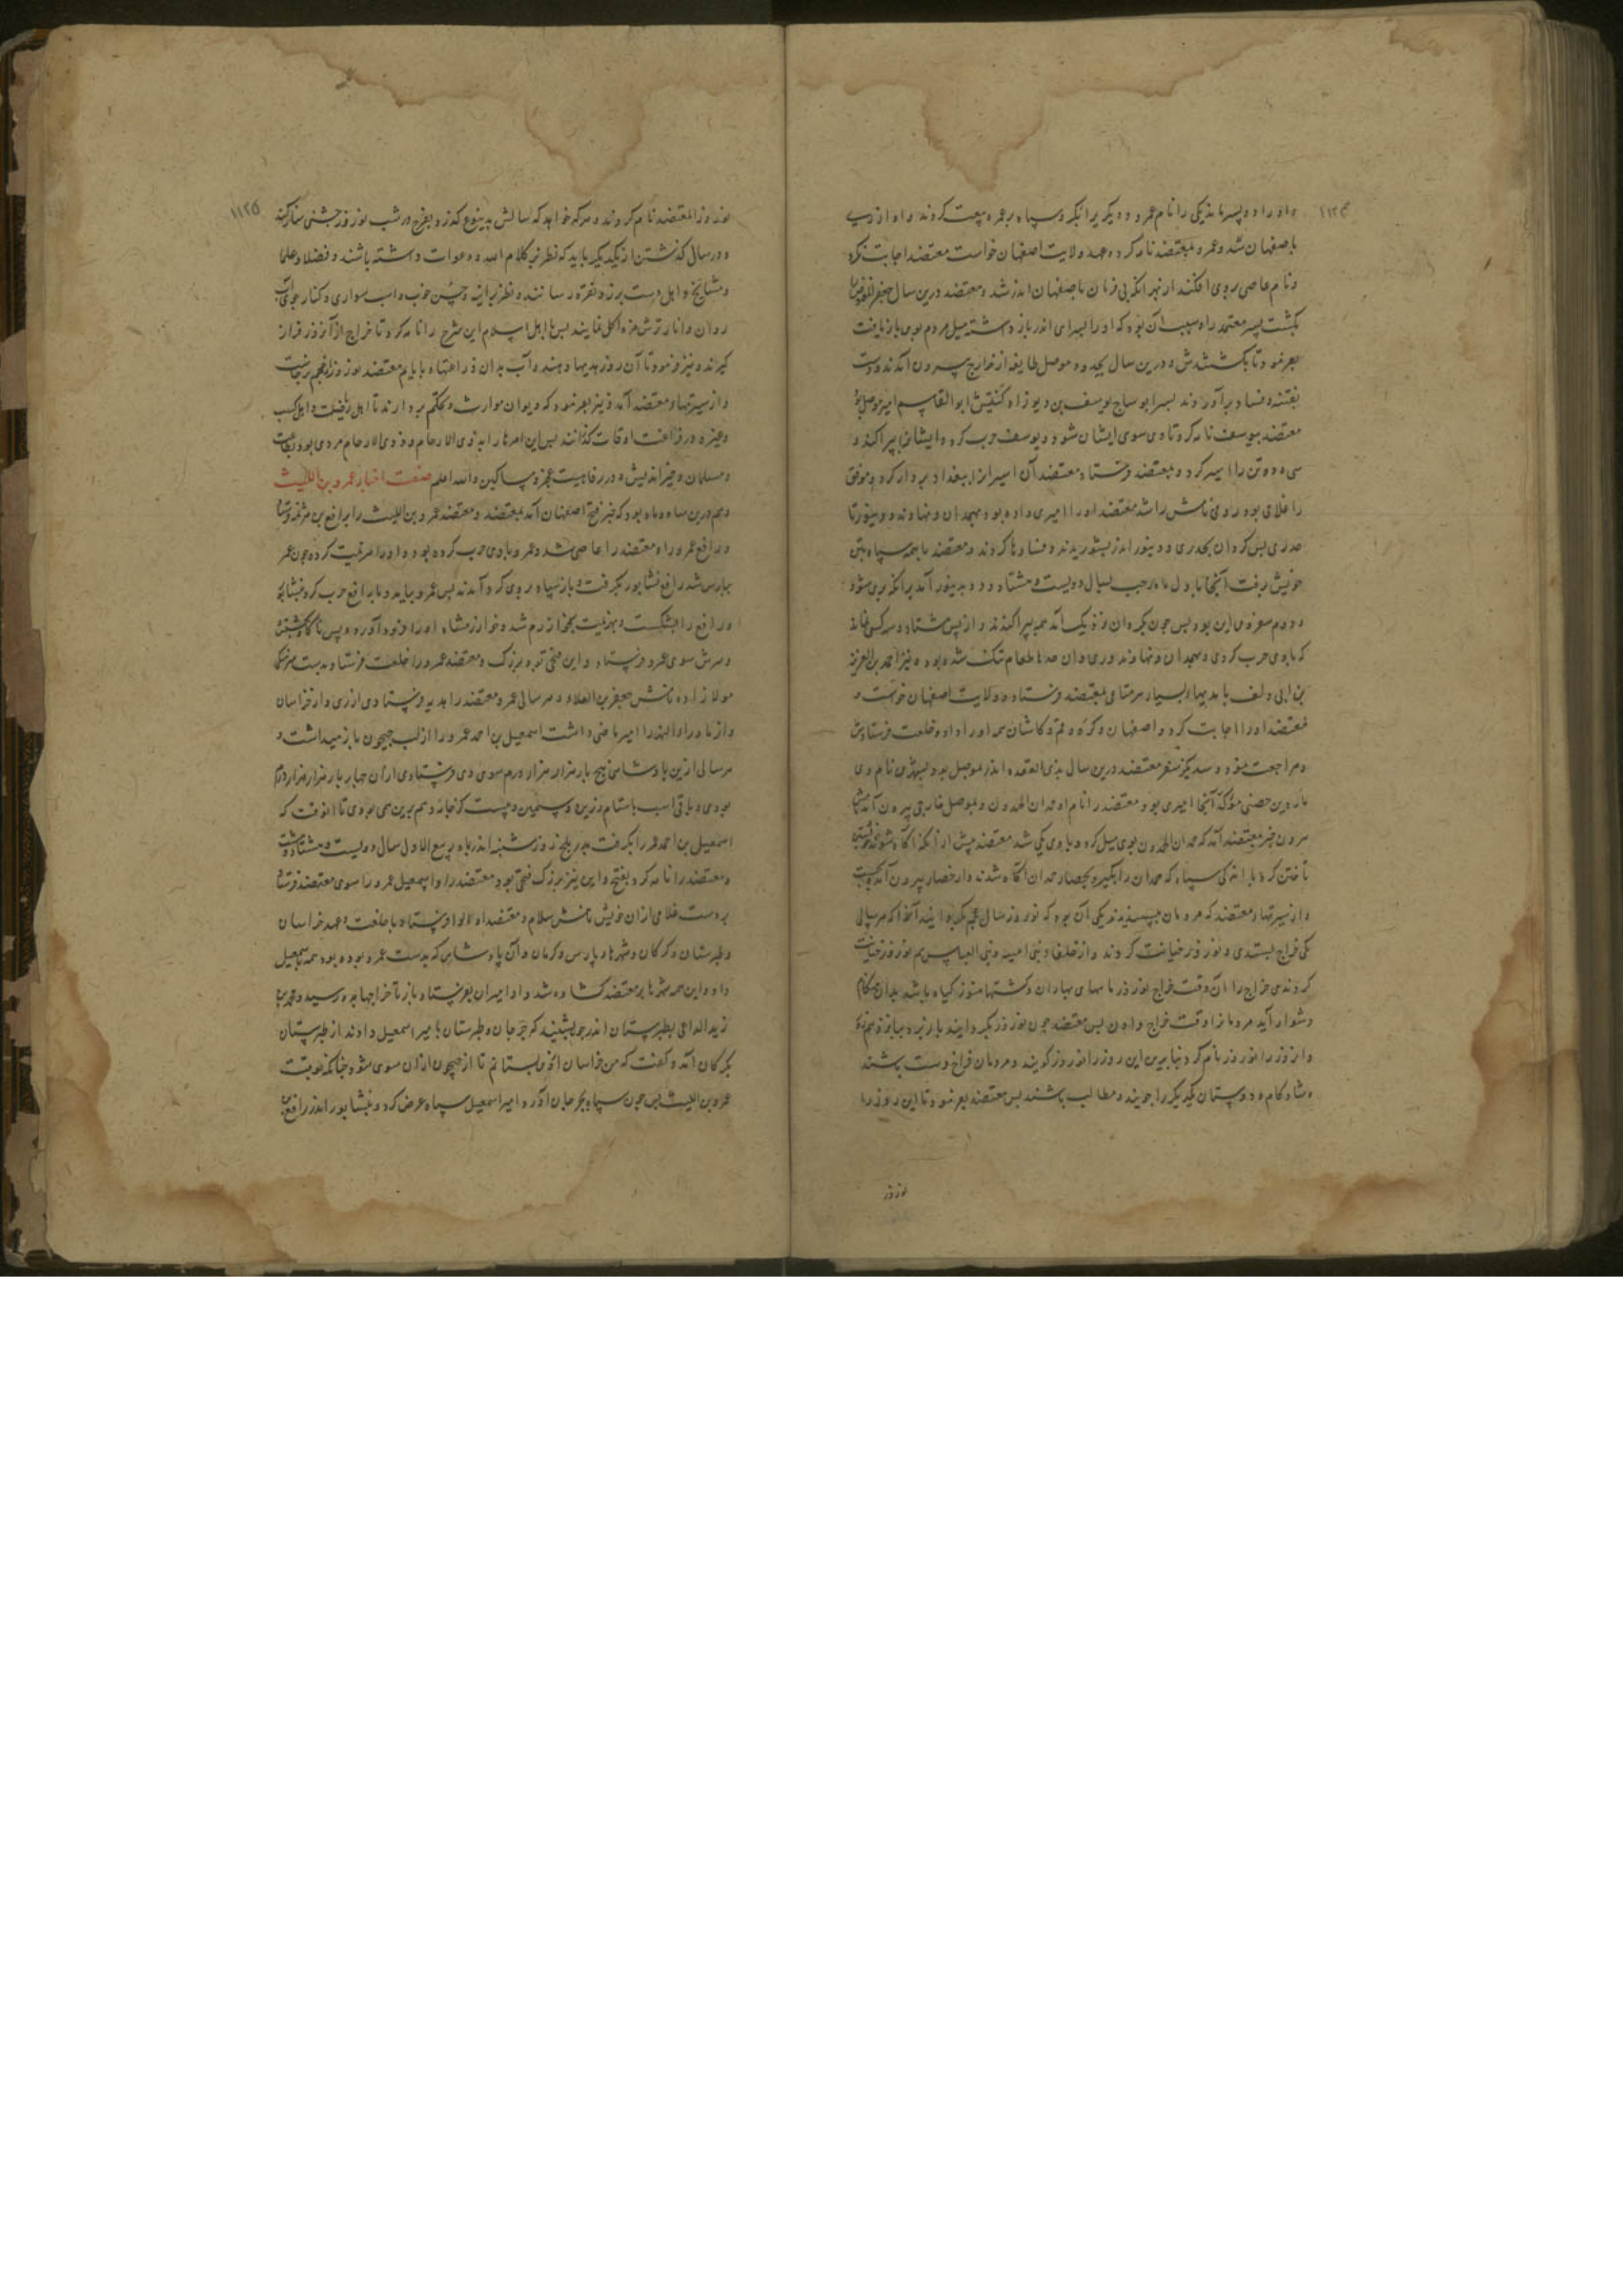 و او را دو پسر ماند یکی را نام عمر و دیگر بو انکر و سپاه بر عمر بیعت کردند و او از ری
باصفهان شد و عمر و بمعتضد نامه کرد و عهد ولایت اصفهان خواست معتضد اجابت نکرد
و نام عاصی بروی افکند از بهر آنکه بی فرمان باصفهان اندر شد و معتضد درین سال جعفر
بکشت پسر معتمد را و سبب آن بود که او را بسرای اندر باز داشته میل مردم بوی باز یافت
بفرمود تا بکشتندش و درین سال بحدود موصل طایفه از خوارج بیرون آمدند و دست
بفتنه و فساد برآوردند پسر ابو ساج یوسف بن دیوزاد کنیتش ابو القاسم امیر موصل بود
معتضد بیوسف نامه کرد تا وی سوی ایشان شود و یوسف حرب کرد و ایشانرا بپراکند و
سی و دو تن را اسیر کرد و بمعتضد فرستاد معتضد آن اسیرانرا ببغداد بر دار کرد و موفق
را غلامی بود رومی نامش راشد معتضد او را امیری داده بود و بهمدان و نهاوند و دینور تا
حد ری پس کردان بحد ری و دینور اندر بشوریدند و فسادها کردند و معتضد با همه سپاه بتن
خویش برفت آنجا باول ماه رجب بسال دویست و هشتاد و دو بدینور آمد برانکه بری شود
و دوم سفر وی این بود پس چون بکردان نزدیک آمد همه بپراکندند و از پس هشتاد و سه کس نماند
که با وی حرب کردی و بهمدان و نهاوند و ری و آن حدها طعام تنک شده بود و نیز احمد بن العزیز
بن ابی دلف با هدیهاء بسیار هر متاعی بمعتضد فرستاد و ولایت اصفهان خواست و
معتضد او را اجابت کرد و اصفهان و کره و قم و کاشان همه او را داد و خلعت فرستادش
و مراجعت نمود و سدیگر سفر معتضد درین سال بذی القعده اندر بموصل بود و بشهری نام وی
ماردین حصنی مؤکد آنجا امیری بود معتضد را نام او حمدان الحمدون و بموصل خارجی بیرون آمد نامش
هرون خبر بمعتضد آمد که حمدان الحمدون بوی میل کرد و با وی یکی شد معتضد پیش از آنکه آکاه شوند
تاختن کرد با اندکی سپاه که حمدان را بگیرد بحصار حمدان آکاه شدند و از حصار بیرون آمد
و از سیرتهاء معتضد که مردمان بپسندیدند یکی آن بود که نوروز سال عجم بگردانید آنچا که هر سالی
یکی خراج بستدی و نوروز خیانت کردند و از خلفاء بنی امیه و بنی العباس هم نوروز خیانت
کردندی خراج را آن وقت خراج نوروز ماههای بهاران و کشتها هنوز کیاه باشد بدان هنکام
دشوار آید مردمانرا وقت خراج دادن پس معتضد چون نوروز بگردانید باز برد بپانزدهم
و از روز را نوروز نام کرد بنابرین این روز را نوروز کویند و مردمان فراخ دست باشند
و شاد کام و دوستان یکدیگر را جویند و مطالب باشند پس معتضد بفرمود تا این روز را
نوروز
۱۱۲۵
نوروز المعتضد نام کردند و هر که خواهد که سالش بدینوع گذرد بفرح در شب نوروز جشنی سازکند
و در سال گذشتن از یکدیگر باید که نظر بر کلام الله و دعوات داشته باشند و فضلا و علما
و مشایخ و اهل دست برند و نقره رسانند و نظر بر آینه و حسن خوب و اسب سواری و کنار جوی آب
روان و انار ترش مزه اکل نمایند پس باهل اسلام این شرح را نامه کرد تا خراج از آنروز فراز
کیرند و نیز فرمود تا آن روز هدیها دهند و آب بدان در
و از سیرتهاء معتضد آمد و نیز بفرمود که دیوان مواریث بحکم بردارند تا اهل
و غیره در فراغت اوقات گذرانند پس این امرها را به ذوی الارحام و ذوی الارحام مردی بود بغایت
و مسلمان و خیر اندیش و در رفاهیت عجزه و مساکین والله اعلم صفت اخبار عمرو بن اللیث
و هم درین ماه بود که خبر فتح اصفهان آمد بمعتضد و معتضد عمرو بن اللیث را برافع بن هرثمه فرستاد
و رافع عمرو را و معتضد را عاصی شد و عمرو با وی حرب کرده بود و او را هزیمت کرده چون عمر
بپارس شد رافع نشابور بگرفت و باز سپاه بر وی گرد آمدند پس عمرو بیامد و با رافع حرب کرد بنشابور
و رافع را بشکست و بهزیمت بخوارزم شد و خوارزمشاه او را فرود آورد و پس ناگاه بکشتش
و سرش سوی عمرو فرستاد و این فتحی بود بزرگ و معتضد عمرو را خلعت فرستاد بدست
مولا زاده نامش جعفر بن العلاء و هر سالی عمرو معتضد را هدیه فرستادی از ری و از خراسان
و از ماوراءالنهر امیر ماضی داشت اسمعیل بن احمد عمرو را از لب جیحون باز میداشت و
هر سالی ازین پادشاهی پنج بار هزار هزار درم سوی وی فرستادی ازان چهار بار هزار هزار درم
بودی و باقی اسب با ستام زرین و سیمین و بیست کرخانه و هم برین همی بودی تا آنوقت که
اسمعیل بن احمد عمر را بگرفت بدر بلخ روز شنبه اندر ماه ربیع الاول سال دویست و هشتاد و هشت
و معتضد را نامه کرد بفتح و این نیز بزرگ فتحی بود معتضد را و اسمعیل عمرو را سوی معتضد فرستاد
بر دست غلامی ازان خویش نامش سلام و معتضد او را لوا فرستاد با خلعت و عهد خراسان
و طبرستان و کرکان و شهرهاء پارس و کرمان و آن پادشاهی که بدست عمرو بوده بود همه باسمعیل
داد و این همه شهرها بر معتضد کشاده شد و او امیران بفرستاد و باز تا خراجها بدو رسید و محمد بن
زید الداعی بطبرستان اندر چو بشنید که جرجان و طبرستان بامیر اسمعیل دادند از طبرستان
بکرکان آمد و گفت که من خراسان اکنون بستانم تا از جیحون ازان سوی شود چنانکه بوقت
عمرو بن اللیث پس چون سپاه بجرجان آورد امیر اسمعیل سپاه عرض کرد و بنشابور اندر رافع بن